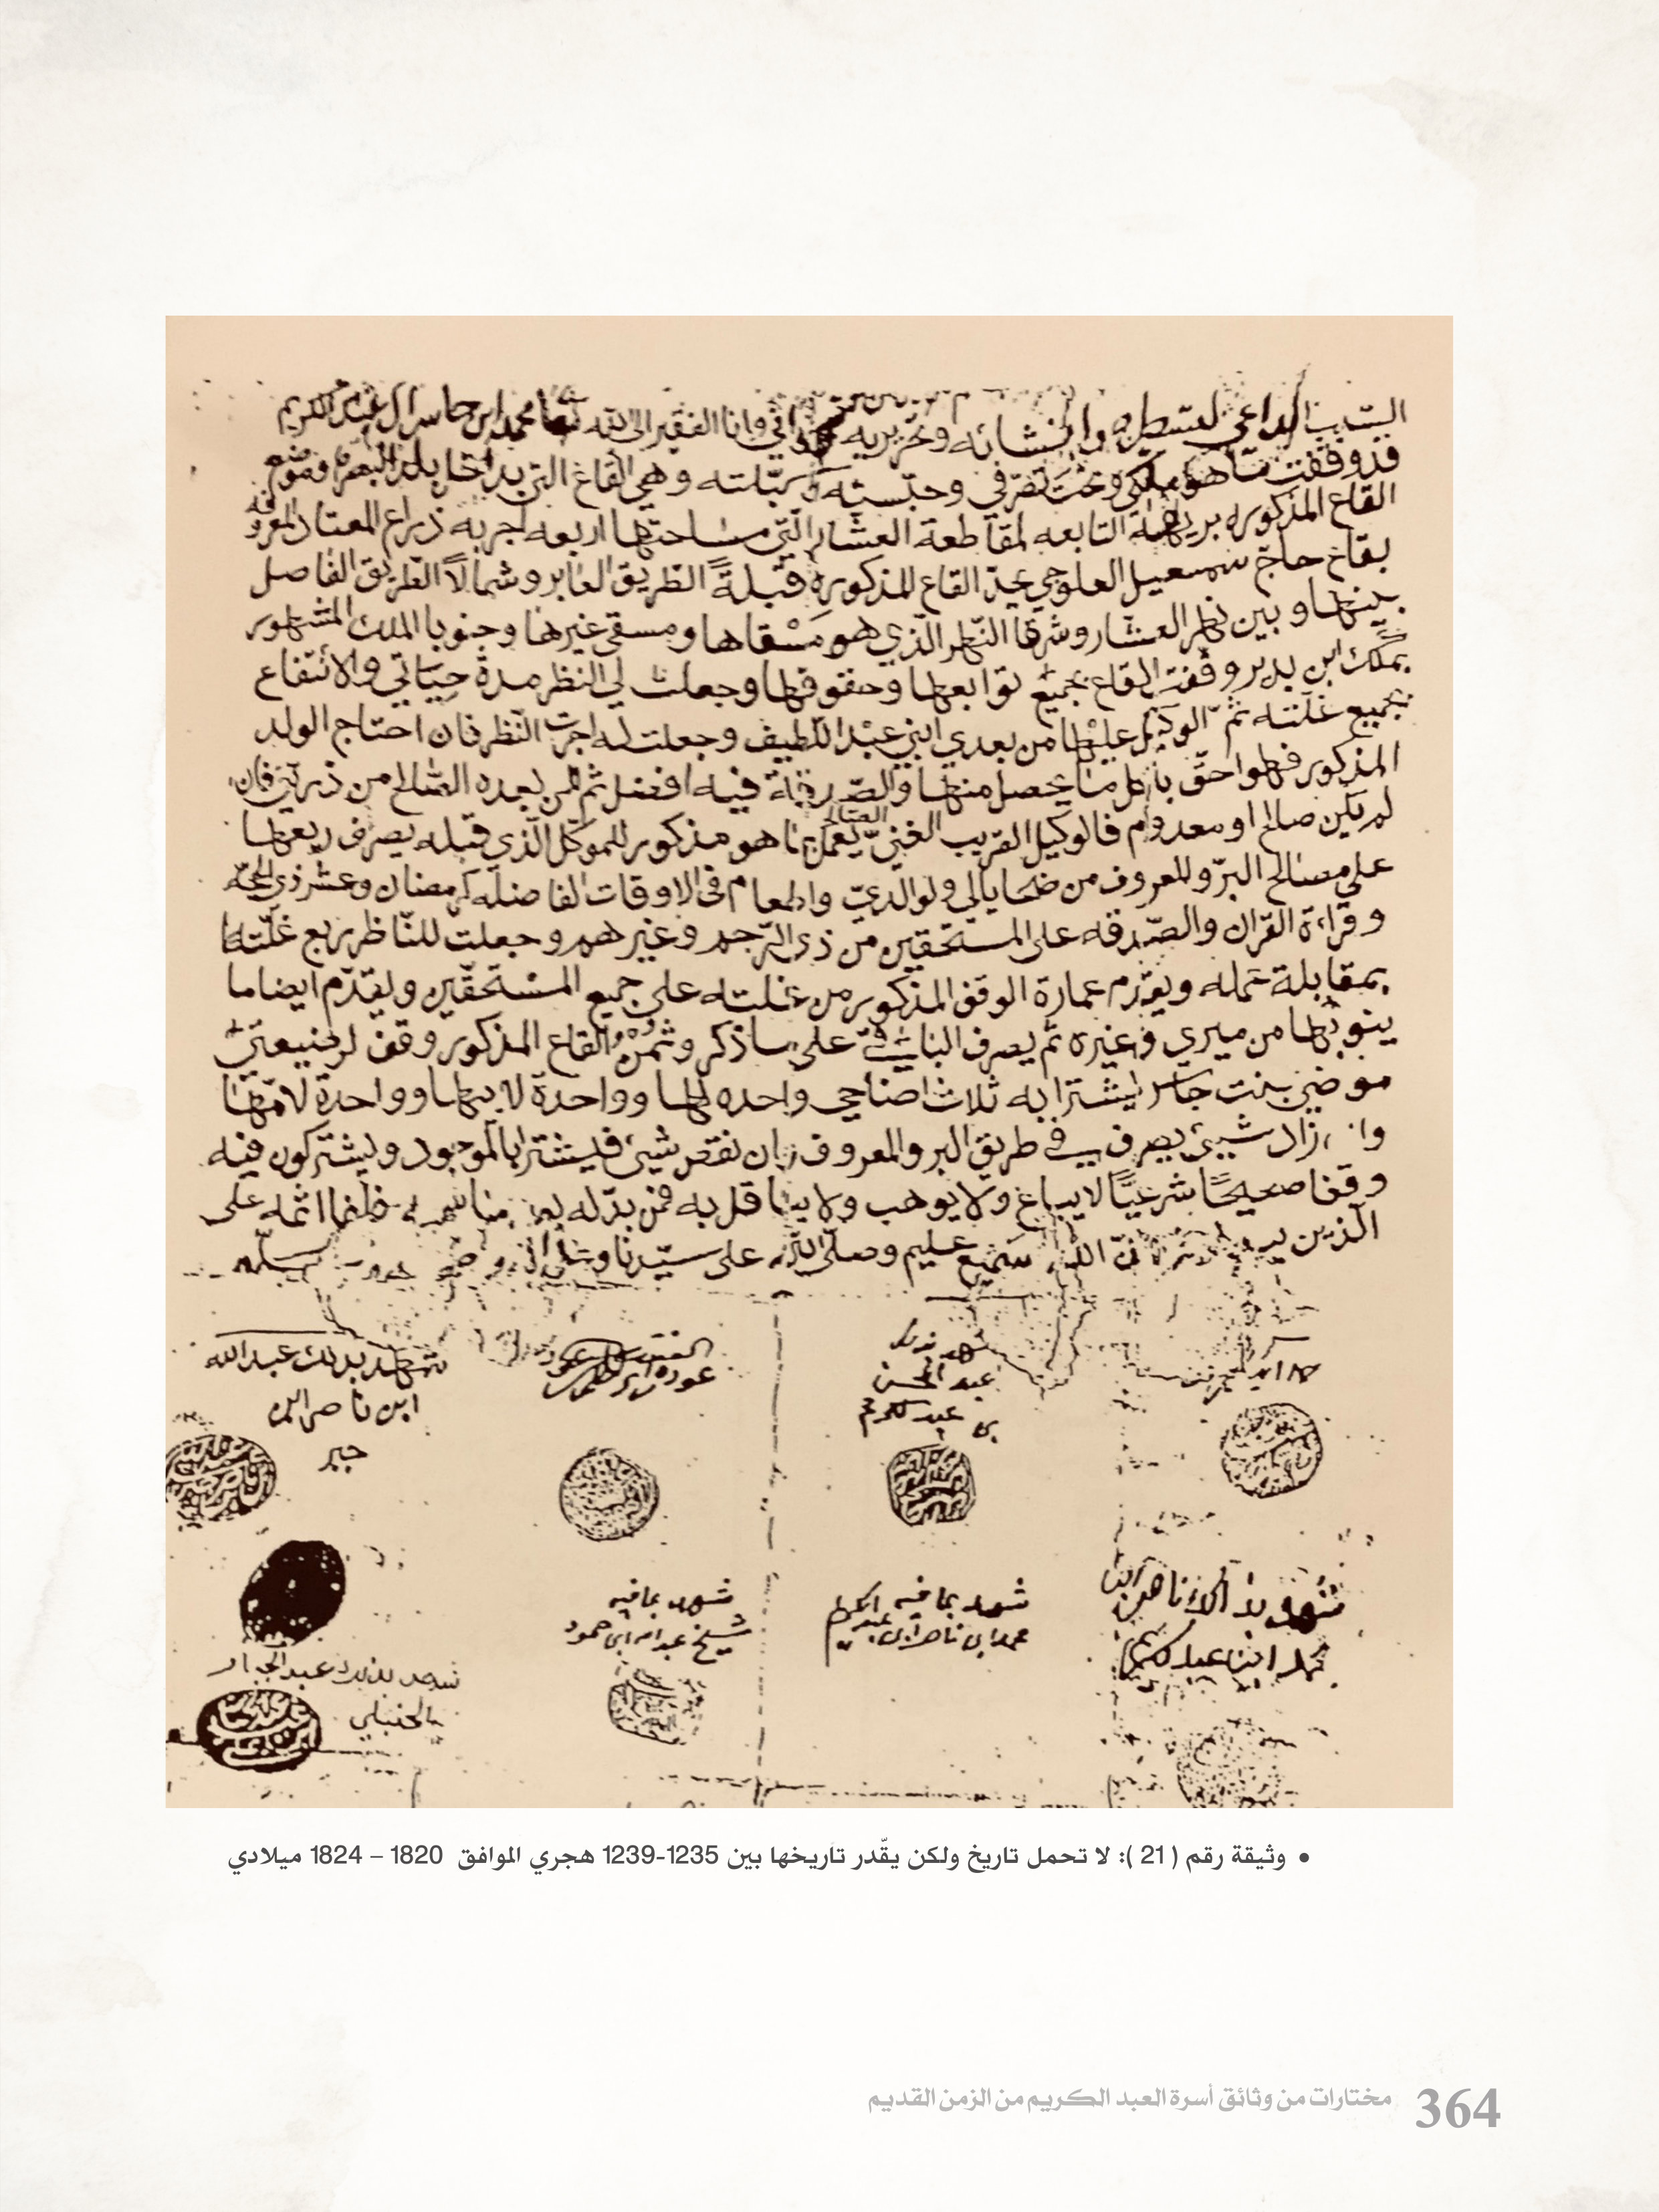 السبب الداعي لتسطيره والمنشائه وتحريره اني وانا الفقير الى الله تعا محمد ابن جاسر ال عبد الكريم
قد وقفت ما هو ملكي وتحت تصرفي وحبّسته وسبّلته وهي القاع التي بداخل بلد البصرة وموضع
القاع المذكوره بريهة التابعه لمقاطعة العشار الّتي مساحتها اربعه اجربه ذراع المعتاد المعروفه
بقاع حاج سمعيل العلوجي يحدّ القاع المذكوره قبلةً الطّريق العابر وشمالاً الطّريق الفاصل
بينها وبين نهر العشّار وشرقا النّهر الّذي هو مسْقاها ومسقى غيرها وجنوبا الملك المشهور
بملك ابن بدير وقفت القاع بجميع توابعها وحقوقها وجعلت لي النظر مدة حياتي والانتفاع
بجميع غلّته ثمّ الوكيل عليْها من بعدي ابني عبْد اللّطيف وجعلت له اجرت النّظر فان احتاج الولد
المذكور فهو احقّ باكل ما يحصل منها والصّدقة فيه افضل ثم لمن بعده الصّالح من ذريتي فان
لم يكن صالح او معدوم فالوكيل القريب الغنيّ الصالح يعمل بما هو مذكور للموكّل الّذي قبله يصرف ريعها
على مصالح البرّ والمعروف من ضحايا لي ولوالديّ واطعام في الاوقات الفاضله كرمضان وعشر ذي الحجّه
وقراءة القران والصّدقه على المستحقين من ذي الرّحم وغيرهم وجعلت للنّاظر ربع غلّتها
بمقابلة عمله ويقدّم عمارة الوقف المذكور من غلته على جميع المسْتحقّين ويقدّم ايضا ما
ينوبها من ميري وغيره ثم يصرف الباقي على ما ذكر وثمنُ القاع المذكور وقف لرضيعتي
موضي بنت جاسر ليشترا به ثلاث اضاحي واحده لها وواحدة لابيها وواحدة لامّها
وان زاد شيئ يصرف في طريق البر والمعروف وان نقص شيئ فليشترا بالموجود وليشتركون فيه
وقفا صحيحًا شرعيًّا لا يباع ولا يوهب ولا يناقل به فمن بدّله بعد ما سمعه فانما اثمه على
الّذين يبدلونه انّ الله سميع عليم وصلى الله على سيّدنا وعلى اله وصحبه وسلم
شهد بذلك
عبد المحسن
بن عبد الكريم
شهد بذلك عبد الله
ابن ناصر ال
جبر
شهد بذلك ناصر ابن
محمد ابن عبد الكريم
شهد بما فيه
محمد ابن ناصر ابن عبد الكريم
شهد بما فيه
شيخ عبد الله ابن حمود
شهد بذلك عبد الجبار
الحنبلي
• وثيقة رقم ( 21 ): لا تحمل تاريخ ولكن يقّدر تاريخها بين 1235-1239 هجري الموافق 1820 – 1824 ميلادي
364 مختارات من وثائق أسرة العبد الكريم من الزمن القديم